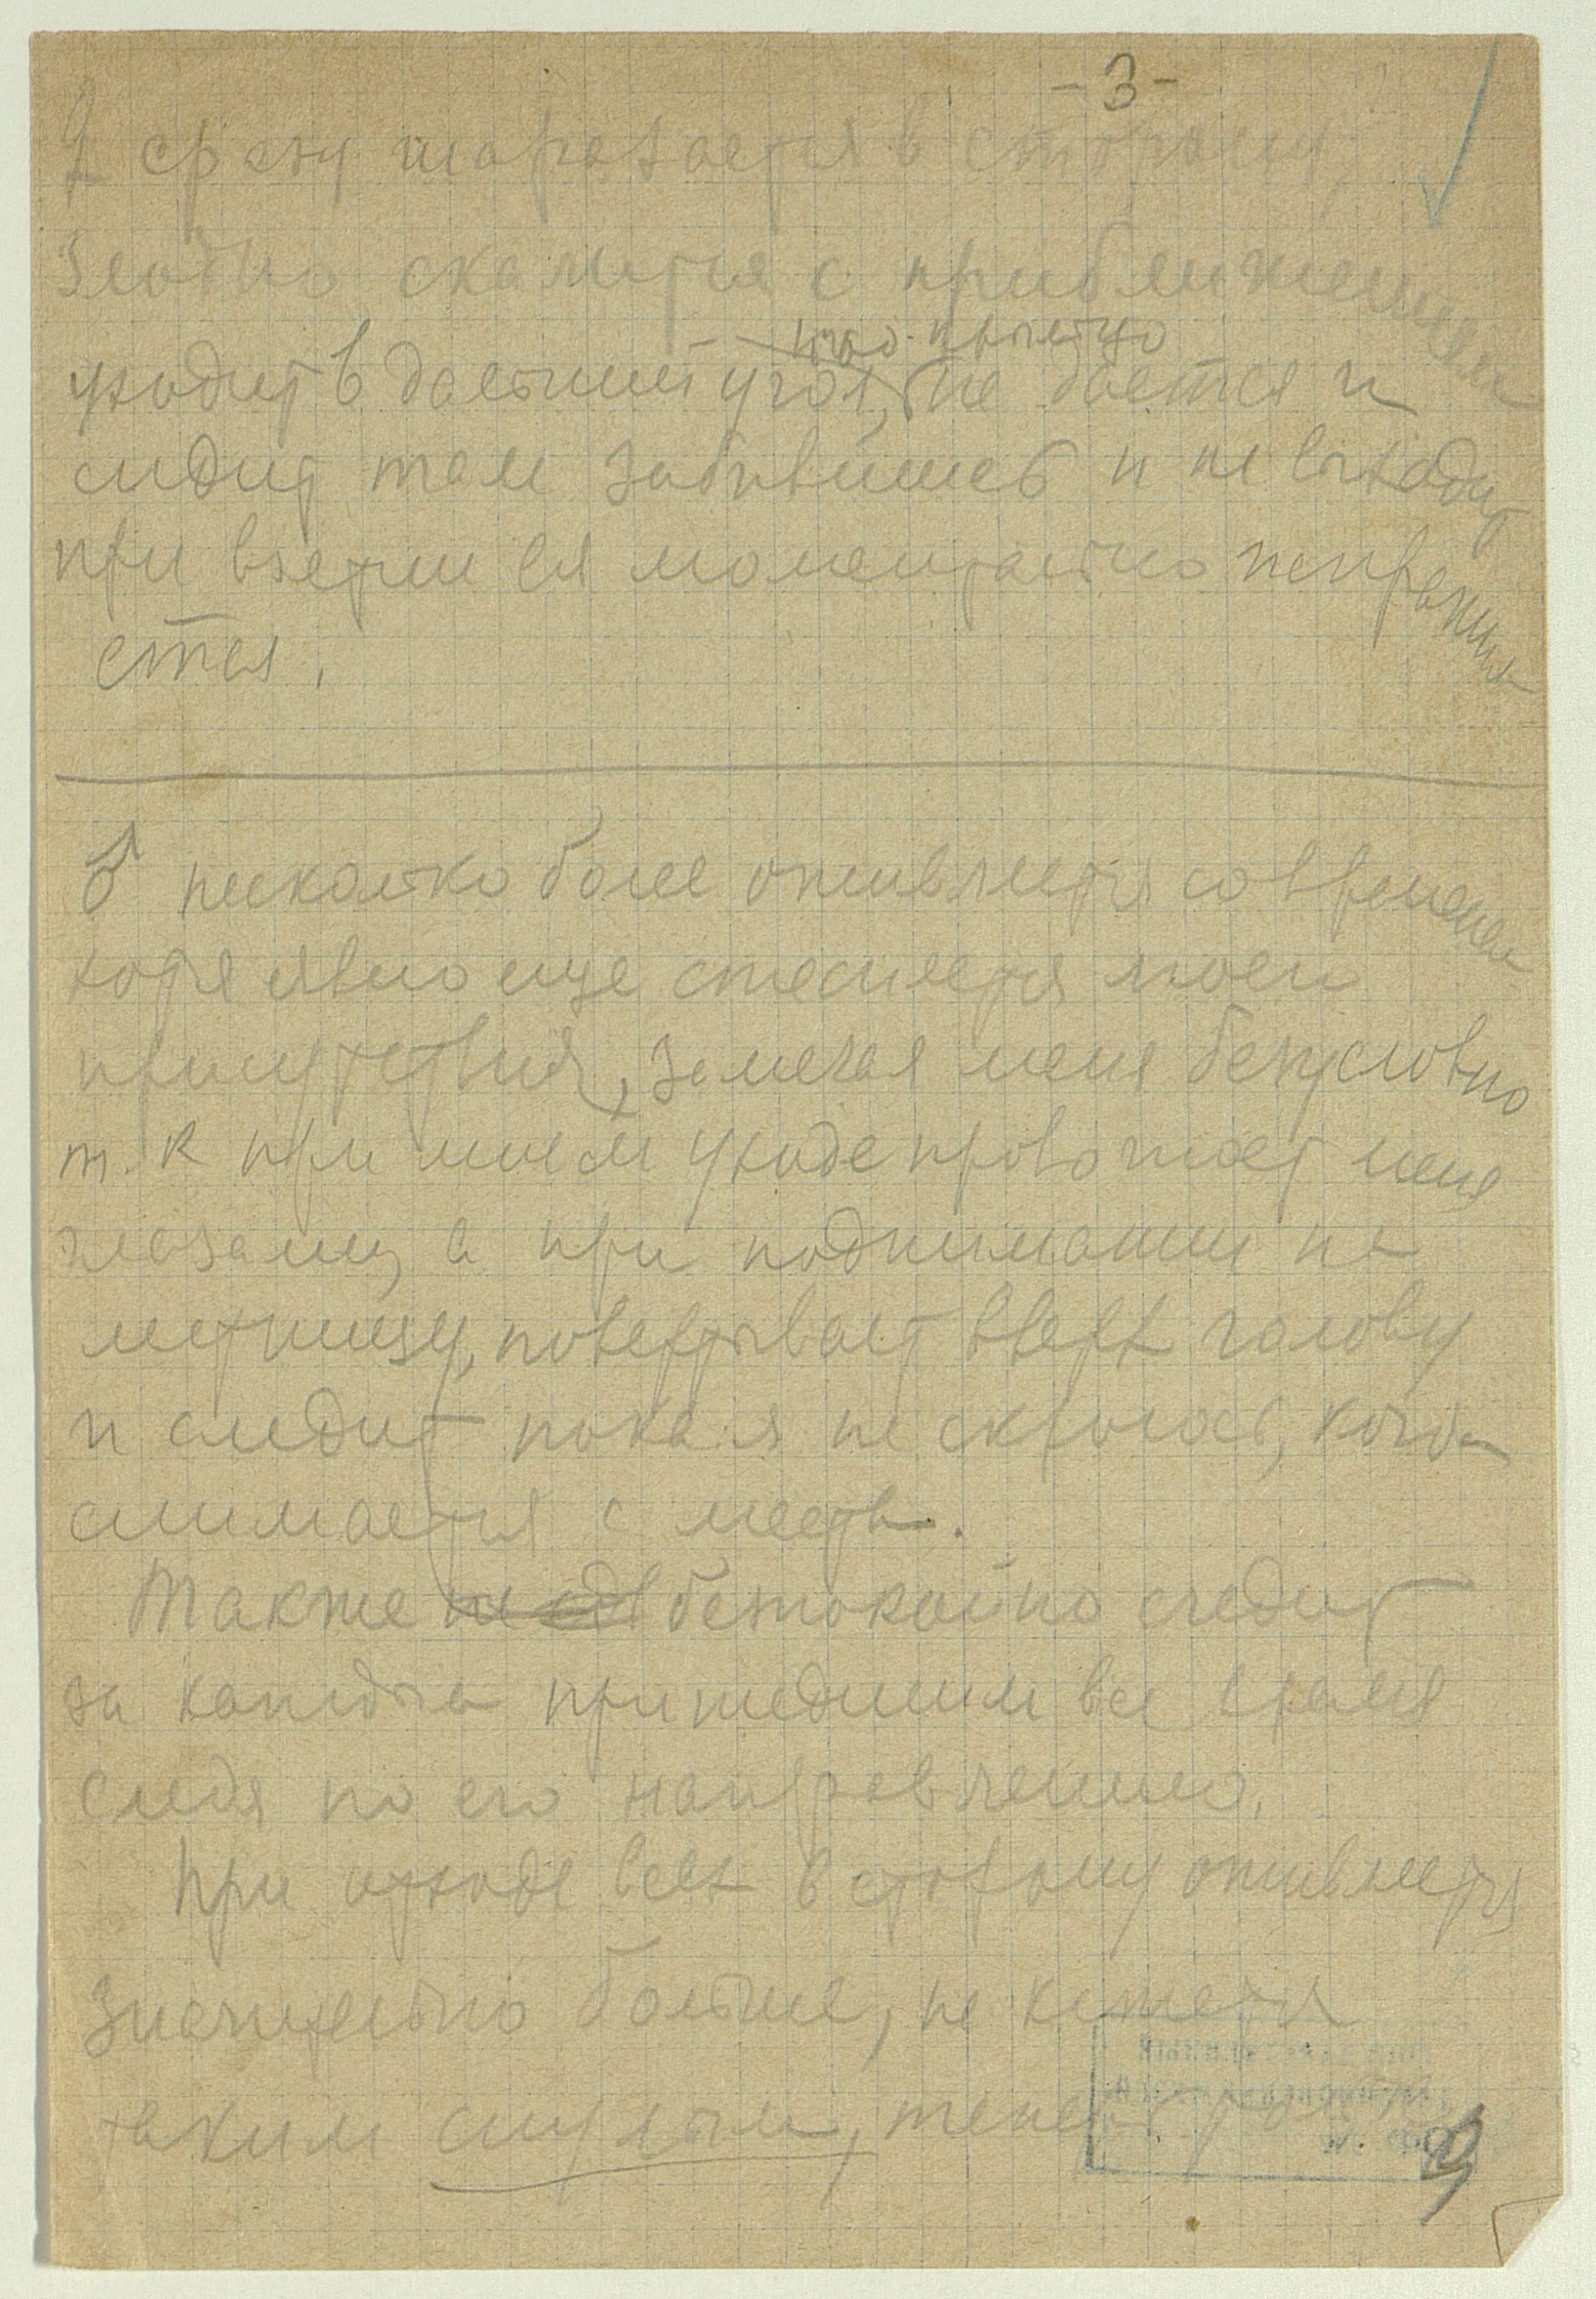 -3-
♀ сразу шарахается в сторону,
злобно скалится с приближением
уходит в дальний угол, не дается и
сидит там забившись и не выходит
при взятии ея моментально испражня
ется.
♂ несколько более оживляется со временем
хотя явно еще стесняется моего
присутствия, замечая меня безусловно
т. к при моем уходе провожает меня
глазами, а при поднимании на
лестницу, повертывает вверх голову
и следит пока я не скроюсь, когда
снимается с места.
Также безпокойно следит
за каждым пришедшим все время
следя по его направлению.
При отходе всех в сторону оживляется
значительно больше, не кажется
таким снулым,